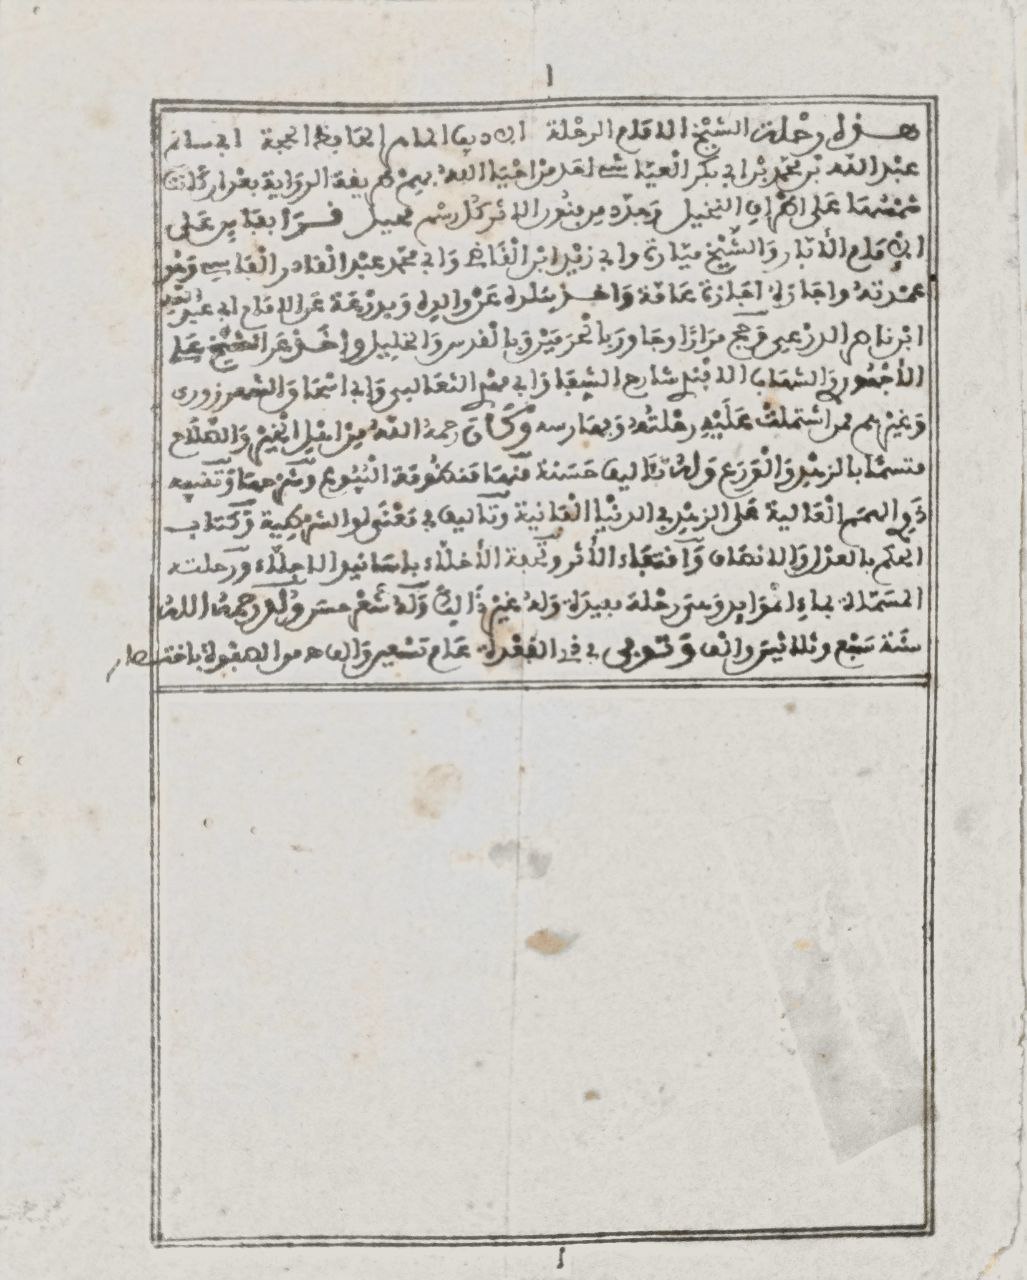 ١
هذه رحلة الشيخ الامام الرحلة الاديب الهمام الحافظ الحجة ابي سالم
عبد الله بن محمد بن ابي بكر العياشي احد من احيا الله بهم طريقة الرواية بعد ان كانت
شمسها على اطراف النخيل وجدد من فنون الاثر كل رسم محيل قرا بفاس على
الامام الابار والشيخ ميارة وابي زيد ابن القاضي وابي محمد عبد القادر الفاسي وهو
عمدته واجازه اجازة عامة واخذ ببلده عن والده وبدرعة عن الامام ابي عبد الله
ابن ناصر الدرعي وحج مرارا وجاور بالحرمين وبالقدس والخليل واخذ عن الشيخ علي
الاجهوري والشهاب الافندي شارح الشفا وابي مهدي الثعالبي وابي اسحاق الشهرزوري
وغيرهم ممن اشتملت عليه رحلته وفهارسه وكان رحمه الله من اهل الخير والصلاح
متسما بالزهد والورع وله تآليف حسنة منها منظومة البيوع وشرحها وتنبيه
ذوي الهمم العالية على الزهد في الدنيا الفانية وتأليف في معنى لو الشرطية وكتاب
الحكم بالعدل والانصاف واقتفاء الاثر وتحفة الأخلاء باسانيد الاجلاء ورحلته
المسماة بماء الموائد وهي رحلة مفيدة وله غير ذالك وله شعر حسن ولد رحمه الله
سنة سبع وثلاثين والف وتوفي في ذي القعدة عام تسعين والف من الصفوة باختصار
١